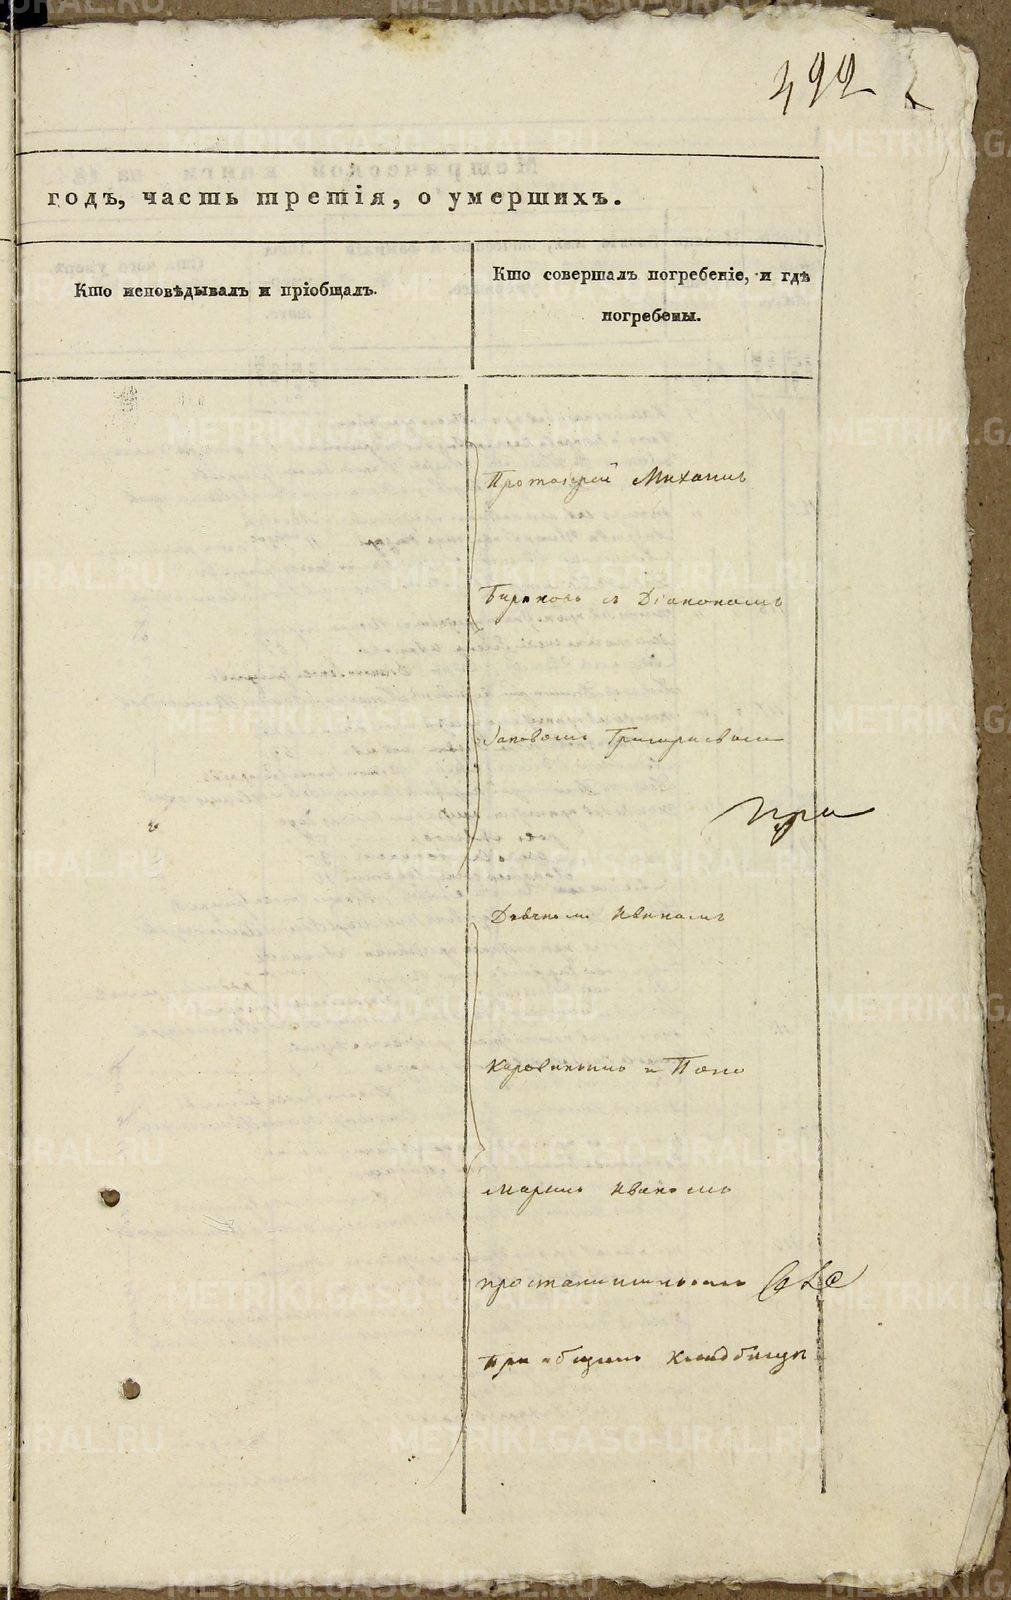 492
годъ, часть третія, о умершихъ.
Кто исповѣдывалъ и пріобщалъ.
Кто совершалъ погребеніе, и гдѣ
погребены.
Протоіерей Михаилъ
Бирюковъ съ Діакономъ
Іаковомъ Григорьевымъ
при
Дьячкомъ Иваномъ
Коровинымъ и Поно
маремъ Иваномъ
При общемъ кладбищѣ
METRIKI.GASO-URAL.RU